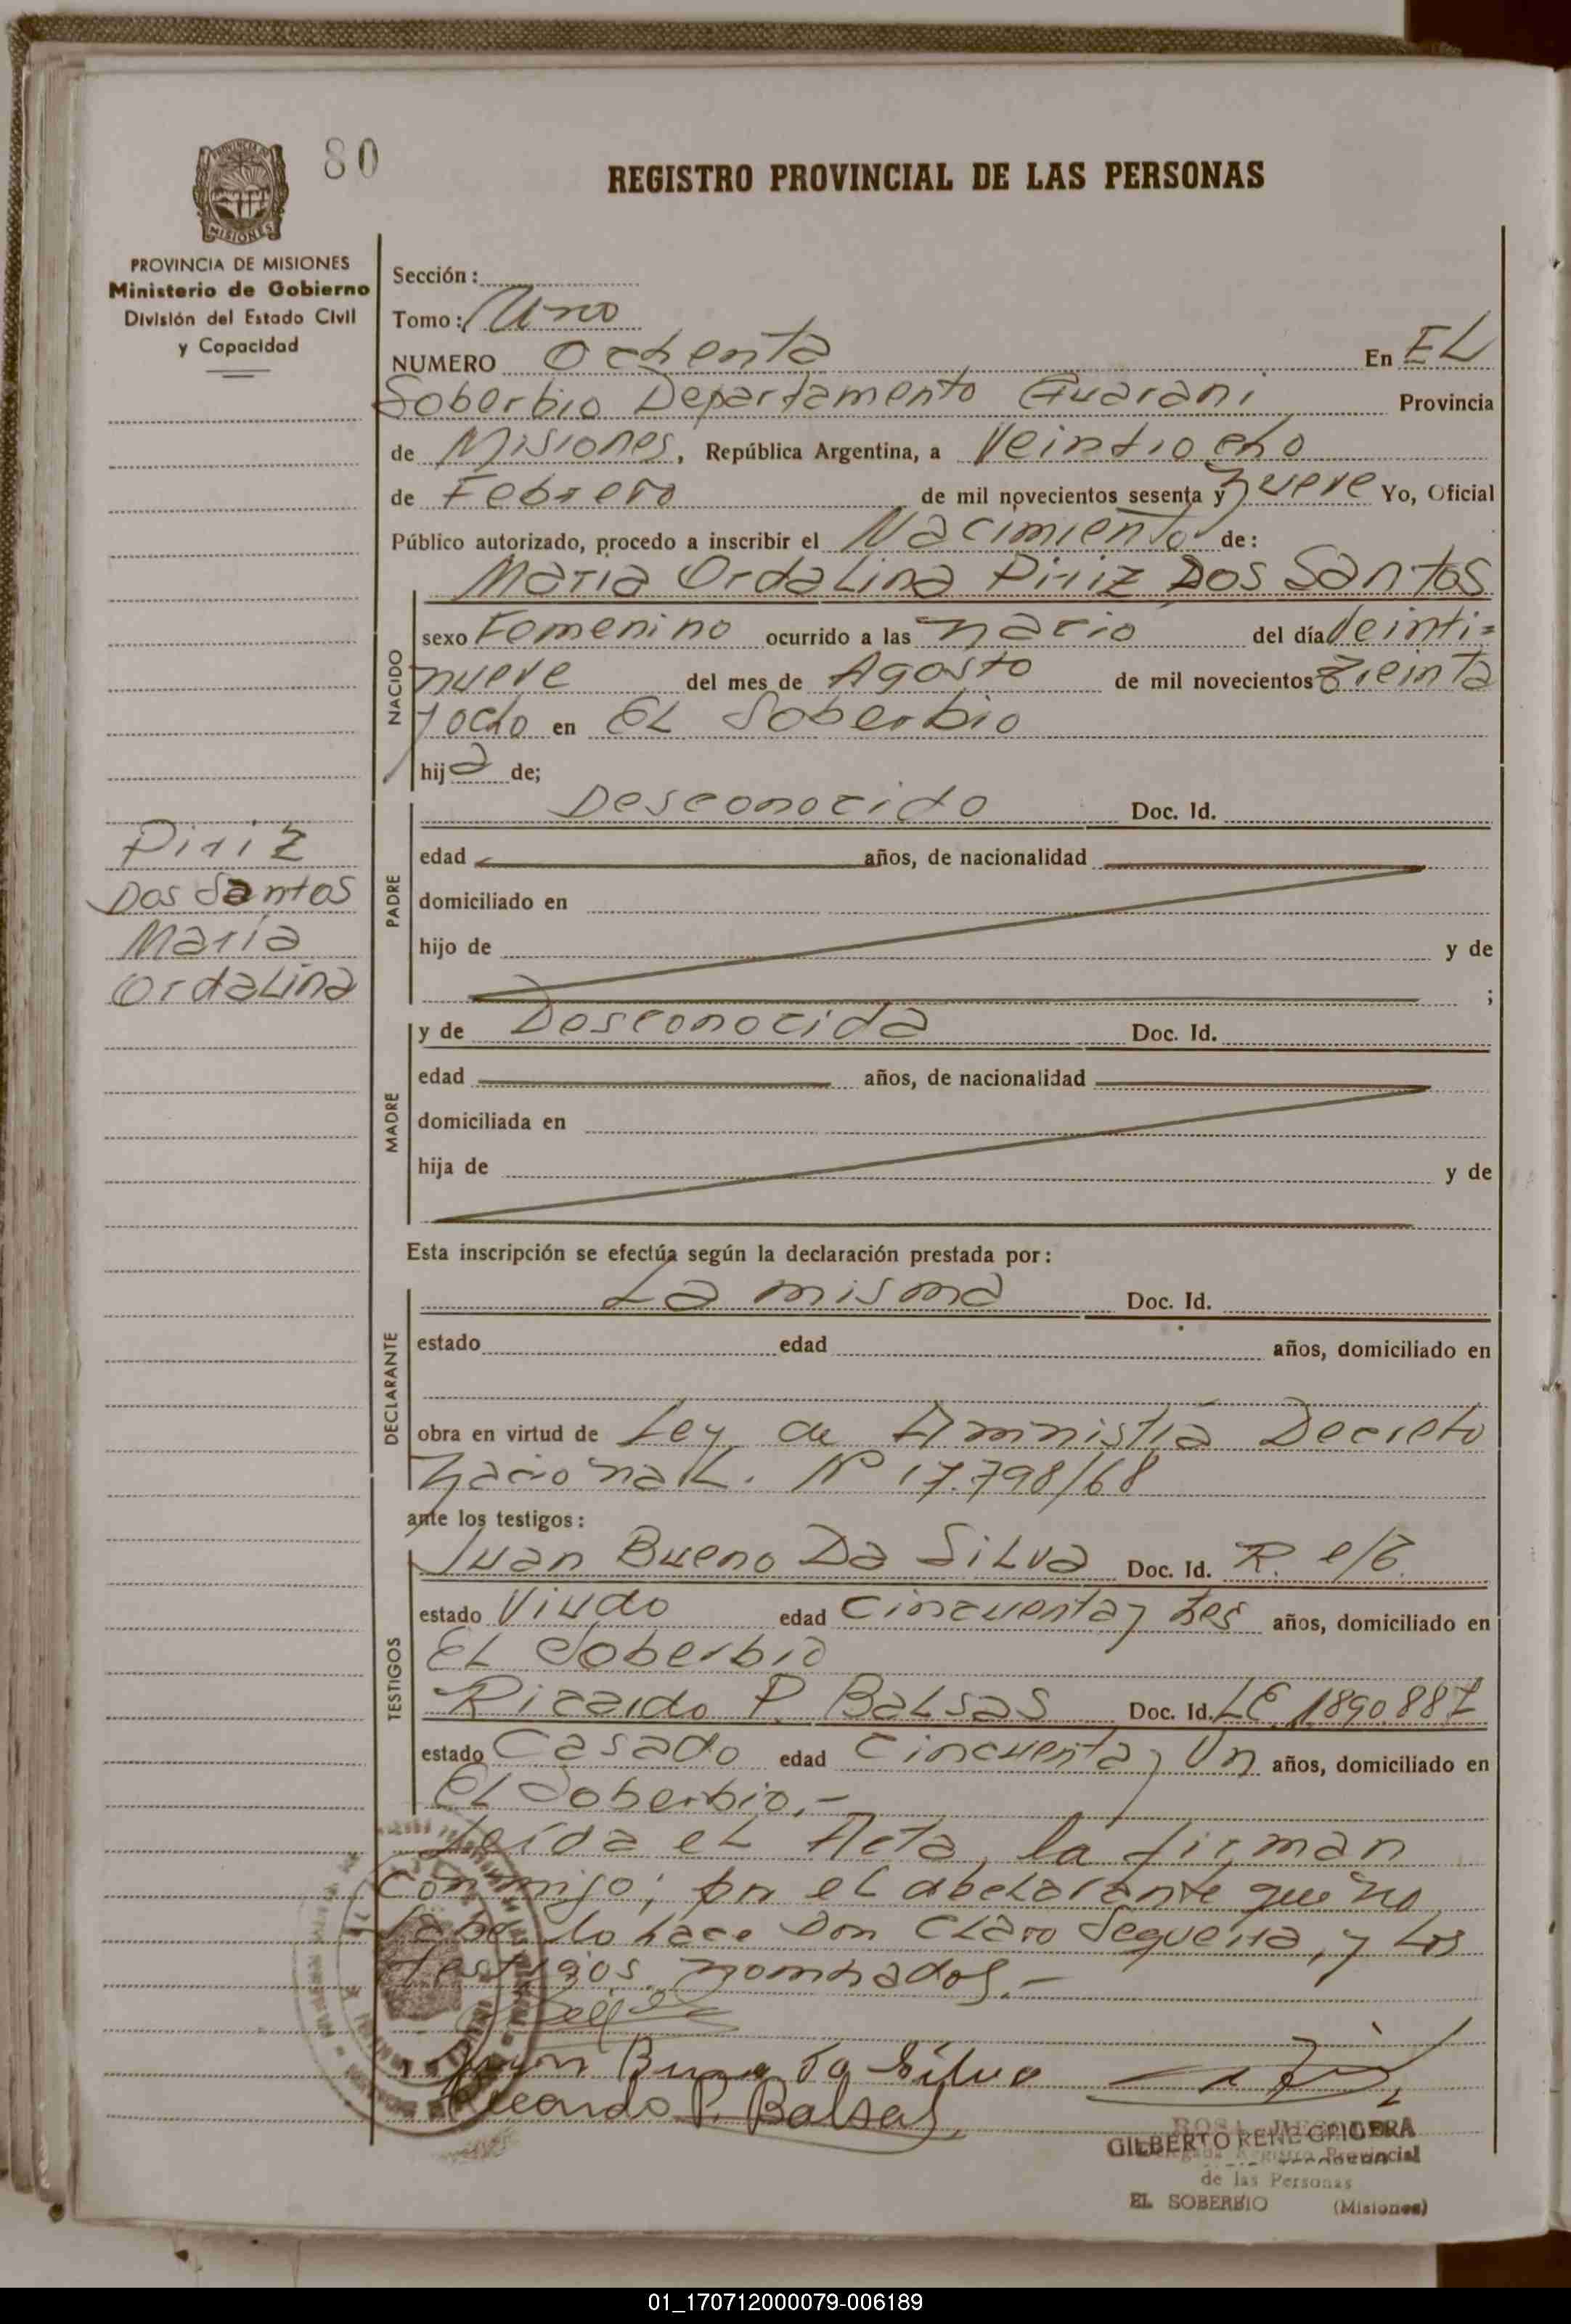 80
REGISTRO PROVINCIAL DE LAS PERSONAS
PROVINCIA DE MISIONES
Ministerio de Gobierno
División del Estado Civil
y Capacidad
Sección:
Tomo: Uno
NUMERO Ochenta En EL
Soberbio Departamento Guarani Provincia
de Misiones, República Argentina, a Veintiocho
de Febrero de mil novecientos sesenta y nueve Yo, Oficial
Público autorizado, procedo a inscribir el Nacimiento de:
Maria OrdaLina Piriz Dos Santos
NACIDO
sexo Femenino ocurrido a las nacio del día Veinti=
nueve del mes de Agosto de mil novecientos Treinta
y ocho en EL Soberbio
hija de;
PADRE
Desconocido Doc. Id.
edad años, de nacionalidad
domiciliado en
hijo de y de
;
Piriz
Dos Santos
María
OrdaLina
MADRE
y de Desconocida Doc. Id.
edad años, de nacionalidad
domiciliada en
hija de y de
Esta inscripción se efectúa según la declaración prestada por:
DECLARANTE
La misma Doc. Id.
estado edad años, domiciliado en
obra en virtud de Ley de Aministia Decreto
Nacional. Nº 17.798/68
ante los testigos:
TESTIGOS
Juan Bueno Da SiLva Doc. Id. R. e/t.
estado Viudo edad Cincuenta y tres años, domiciliado en
EL Soberbio
Ricardo P. BaLsas Doc. Id. LE. 1.890.887
estado Casado edad Cincuenta y Un años, domiciliado en
EL Soberbio.-
Leída eL Acta, la firman
conmigo; por eL declarante que no
sabe lo hace Don CLaro Sequeira, y los
testigos nominados.-
Juan Bueno Da Silva
Ricardo P. Balsas
GILBERTO RENE
Registro Provincial
de las Personas
EL SOBERBIO (Misiones)
01_170712000079-006189